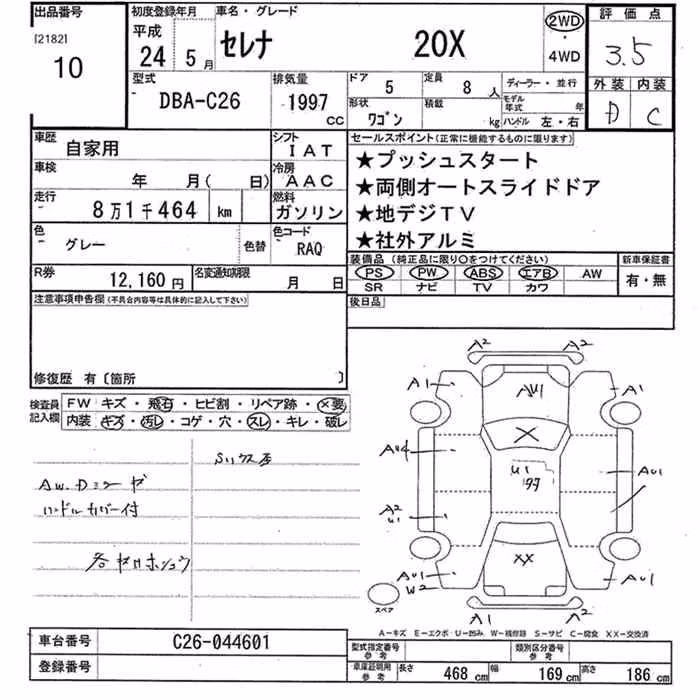 出品番号
[2182]
10
初度登録年月
平成
24年5月
車名・グレード
セレナ 20X
2WD
・
4WD
評価点
3.5
外装 内装
D C
型式
DBA-C26
排気量
1997 CC
ドア
5
定員
8人
形状
ワゴン
積載
kg
ディーラー・並行
モデル年式 年
ハンドル 左・右
車歴
自家用
シフト
IAT
車検
年 月( 日)
冷房
AAC
走行
8万1千464 km
燃料
ガソリン
色
グレー
色替
色コード
RAQ
R券
12,160円
名変通知期限
月 日
セールスポイント(正常に機能するものに限ります)
★プッシュスタート
★両側オートスライドドア
★地デジTV
★社外アルミ
装備品 (純正品に限り○をつけてください)
PS PW ABS エアB AW
SR ナビ TV カワ
新車保証書
有・無
後日品
注意事項申告欄(不具合内容等は具体的に記入して下さい)
修復歴 有〔箇所 〕
検査員記入欄
FW キズ・飛石・ヒビ割・リペア跡・×要
内装・キズ・汚レ・コゲ・穴・スレ・キレ・破レ
ハンドルカバー付
A2 A2
A1 AU1 A1
X
AU4
U1
AU1
A2
U1
XX
AU1
W2
AU1
A1 A2
スペア
A-キズ E-エクボ U-凹み W-補修跡 S-サビ C-腐食 XX-交換済
車台番号
C26-044601
登録番号
型式指定番号
参考
類別区分番号
参考
車庫証明用
参考
長さ 468cm 幅 169cm 高さ 186cm